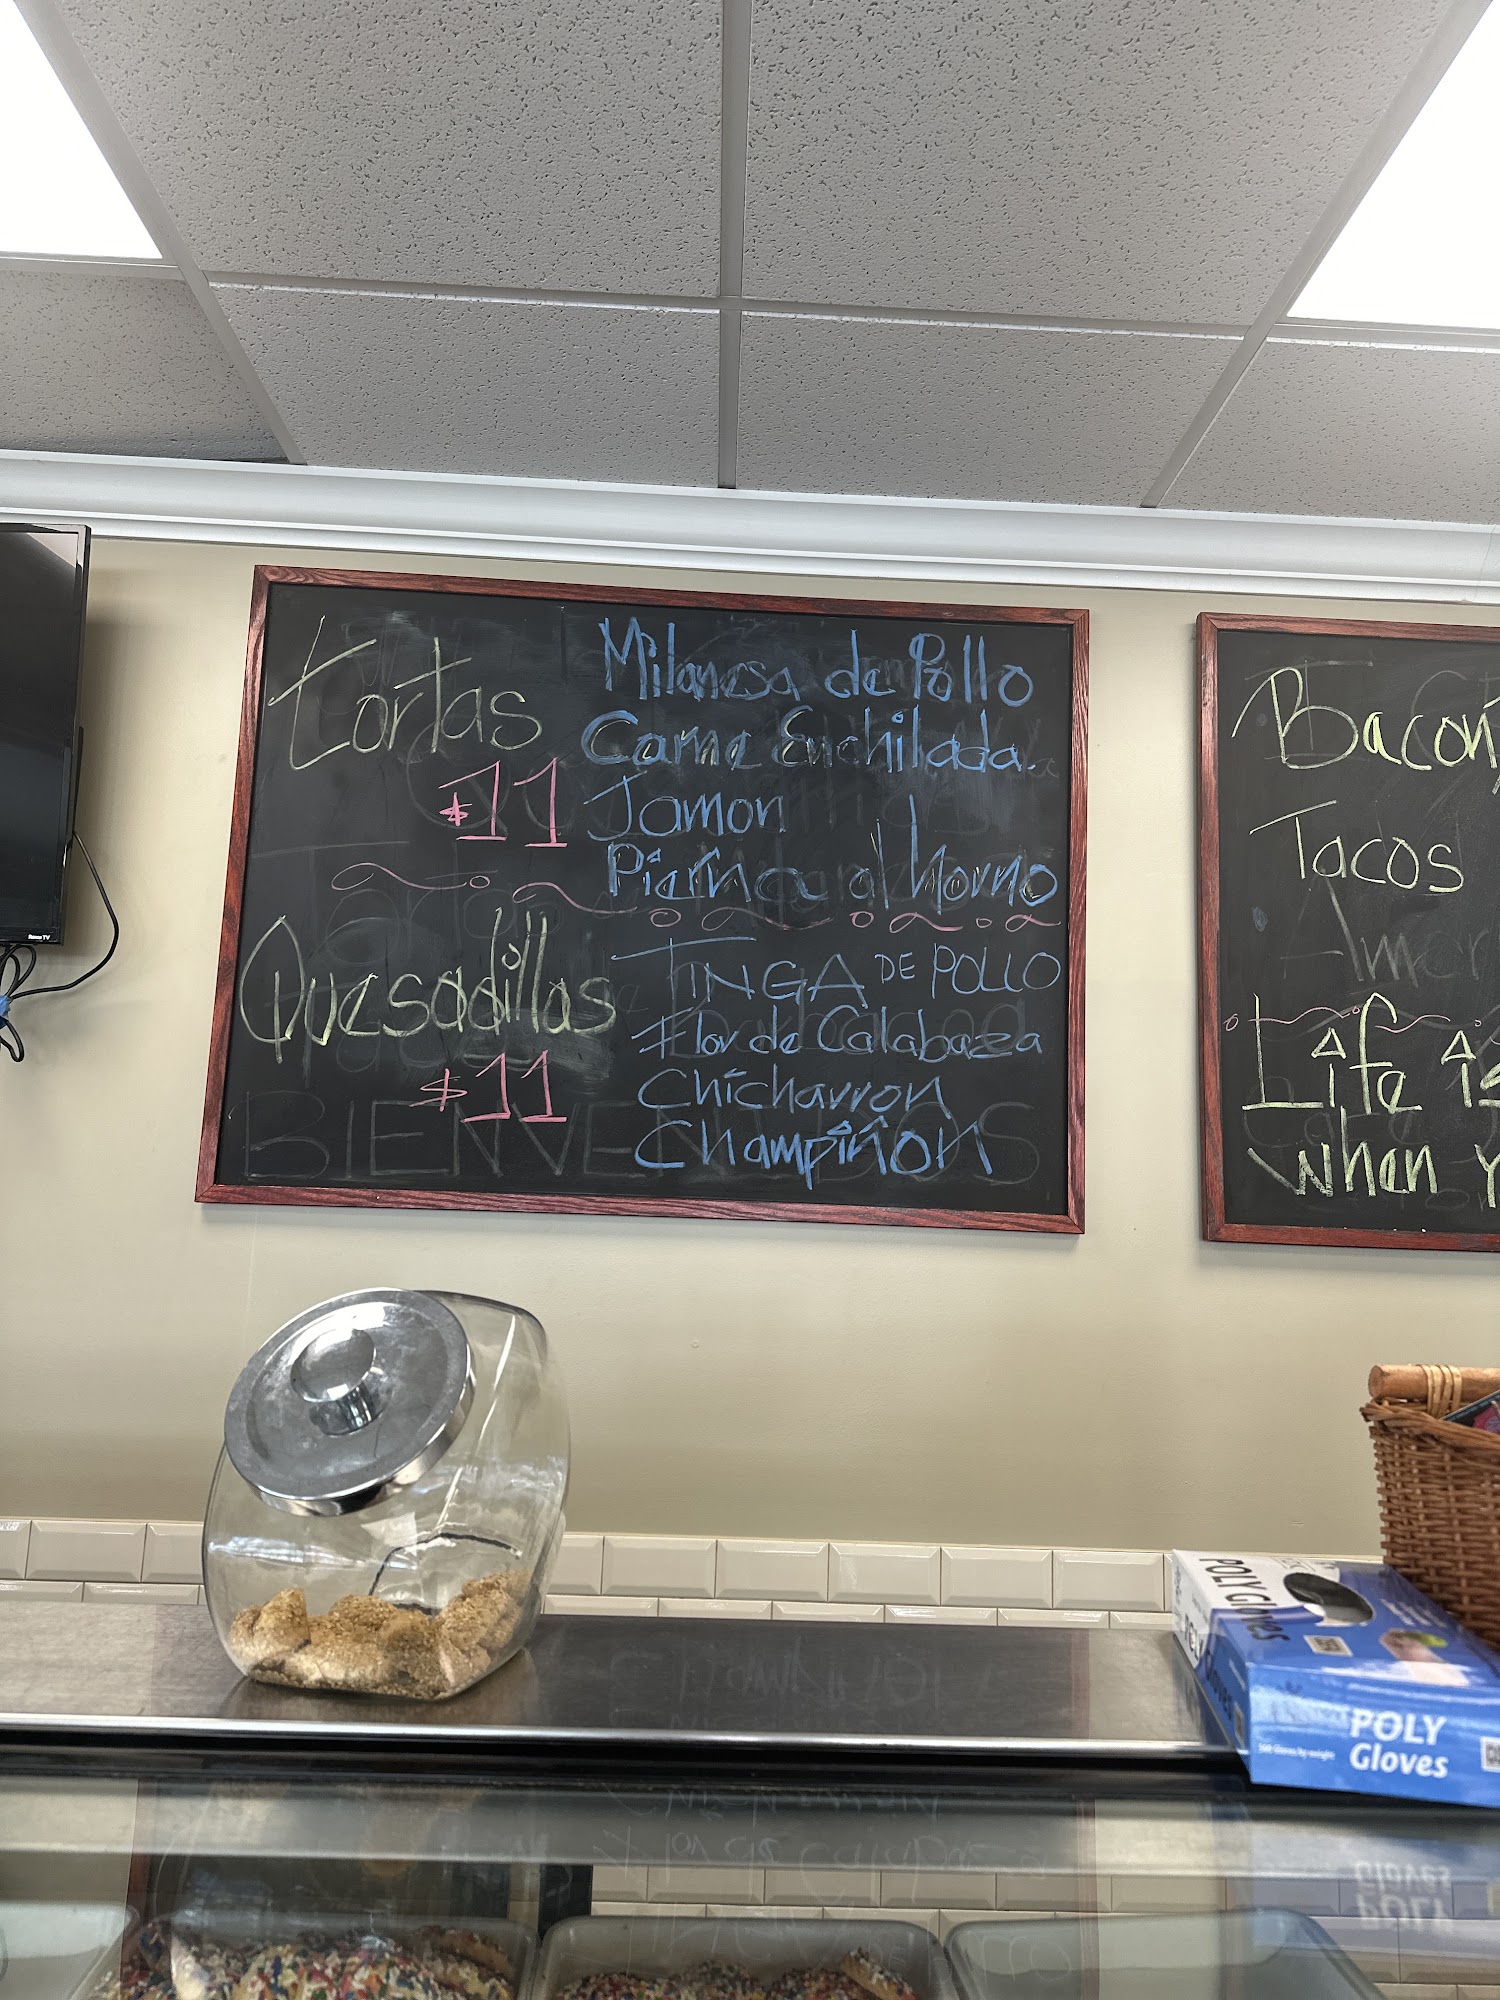 Tortas
$11
Milanesa de Pollo
Carne Enchilada.
Jamon
Pierna al horno
Quesadillas
$11
TINGA DE POLLO
Flor de Calabaza
Chicharron
Champiñon
BIENVENIDOS
Bacon,
Tacos
Life is
when y
Roku TV
POLY Gloves
POLY
Gloves